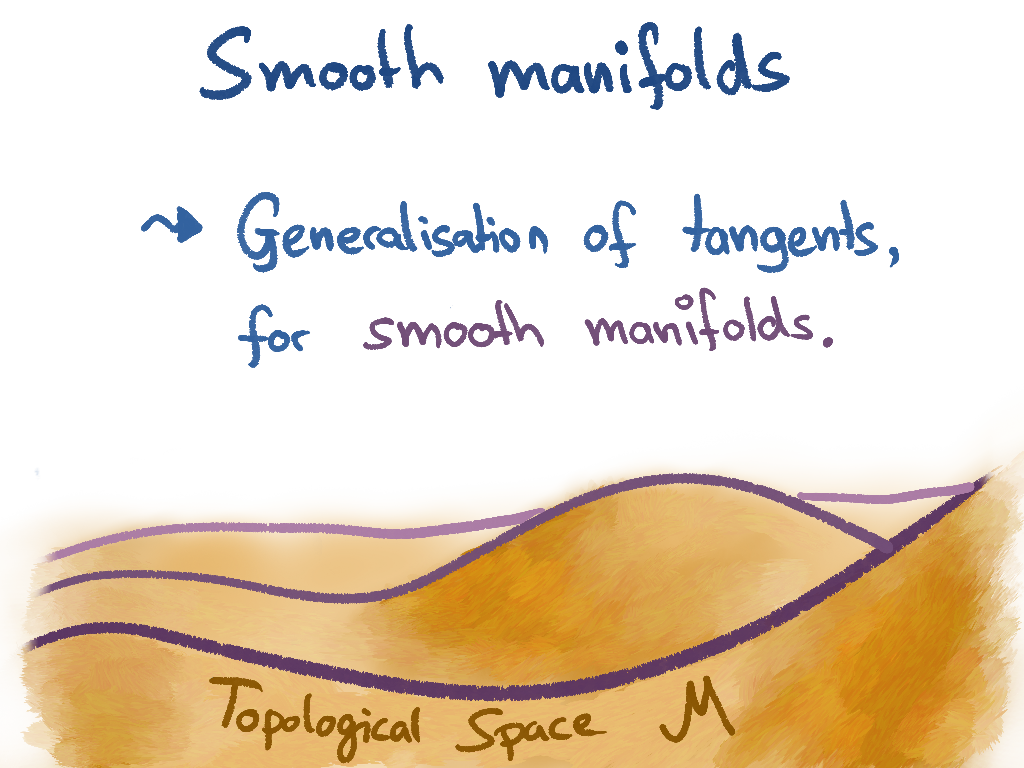 Smooth manifolds
Generalisation of tangents,
for smooth manifolds.
Topological Space M